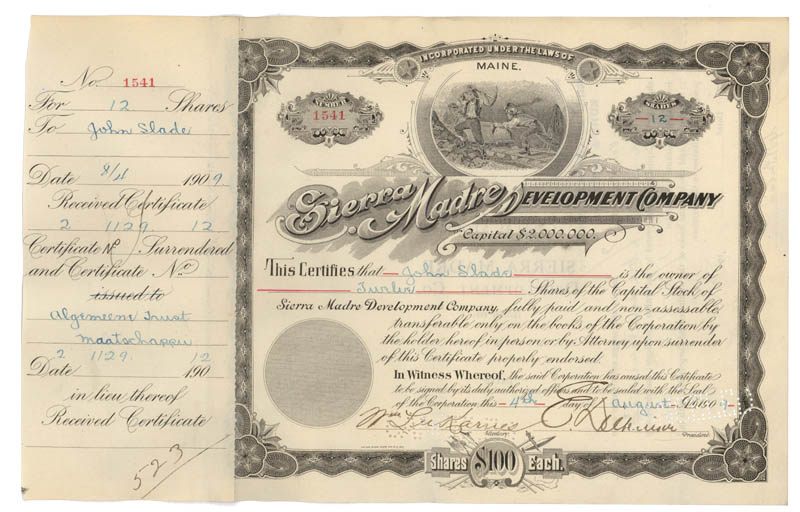 No. 1541
For 12 Shares
To John Slade
Date 8/4 1909
Received Certificate
2 1129 12
Certificate No Surrendered
and Certificate No
issued to
Algemeene Trust
Maatschappij
2 1129. 12
Date 190
in lieu thereof
Received Certificate
523
INCORPORATED UNDER THE LAWS OF
MAINE.
NUMBER
1541
SHARES
12
Sierra Madre DEVELOPMENT COMPANY
Capital $2,000,000.
This Certifies that John Slade is the owner of
Shares of the Capital Stock of
Sierra Madre Development Company, fully paid and non-assessable
transferable only on the books of the Corporation by
the holder hereof in person or by Attorney upon surrender
of this Certificate properly endorsed.
In Witness Whereof, the said Corporation has caused this Certificate
to be signed by its duly authorized officers and to be sealed with the Seal
of the Corporation this 4th day of August A.D. 1909
Secretary President
Shares $100 Each.